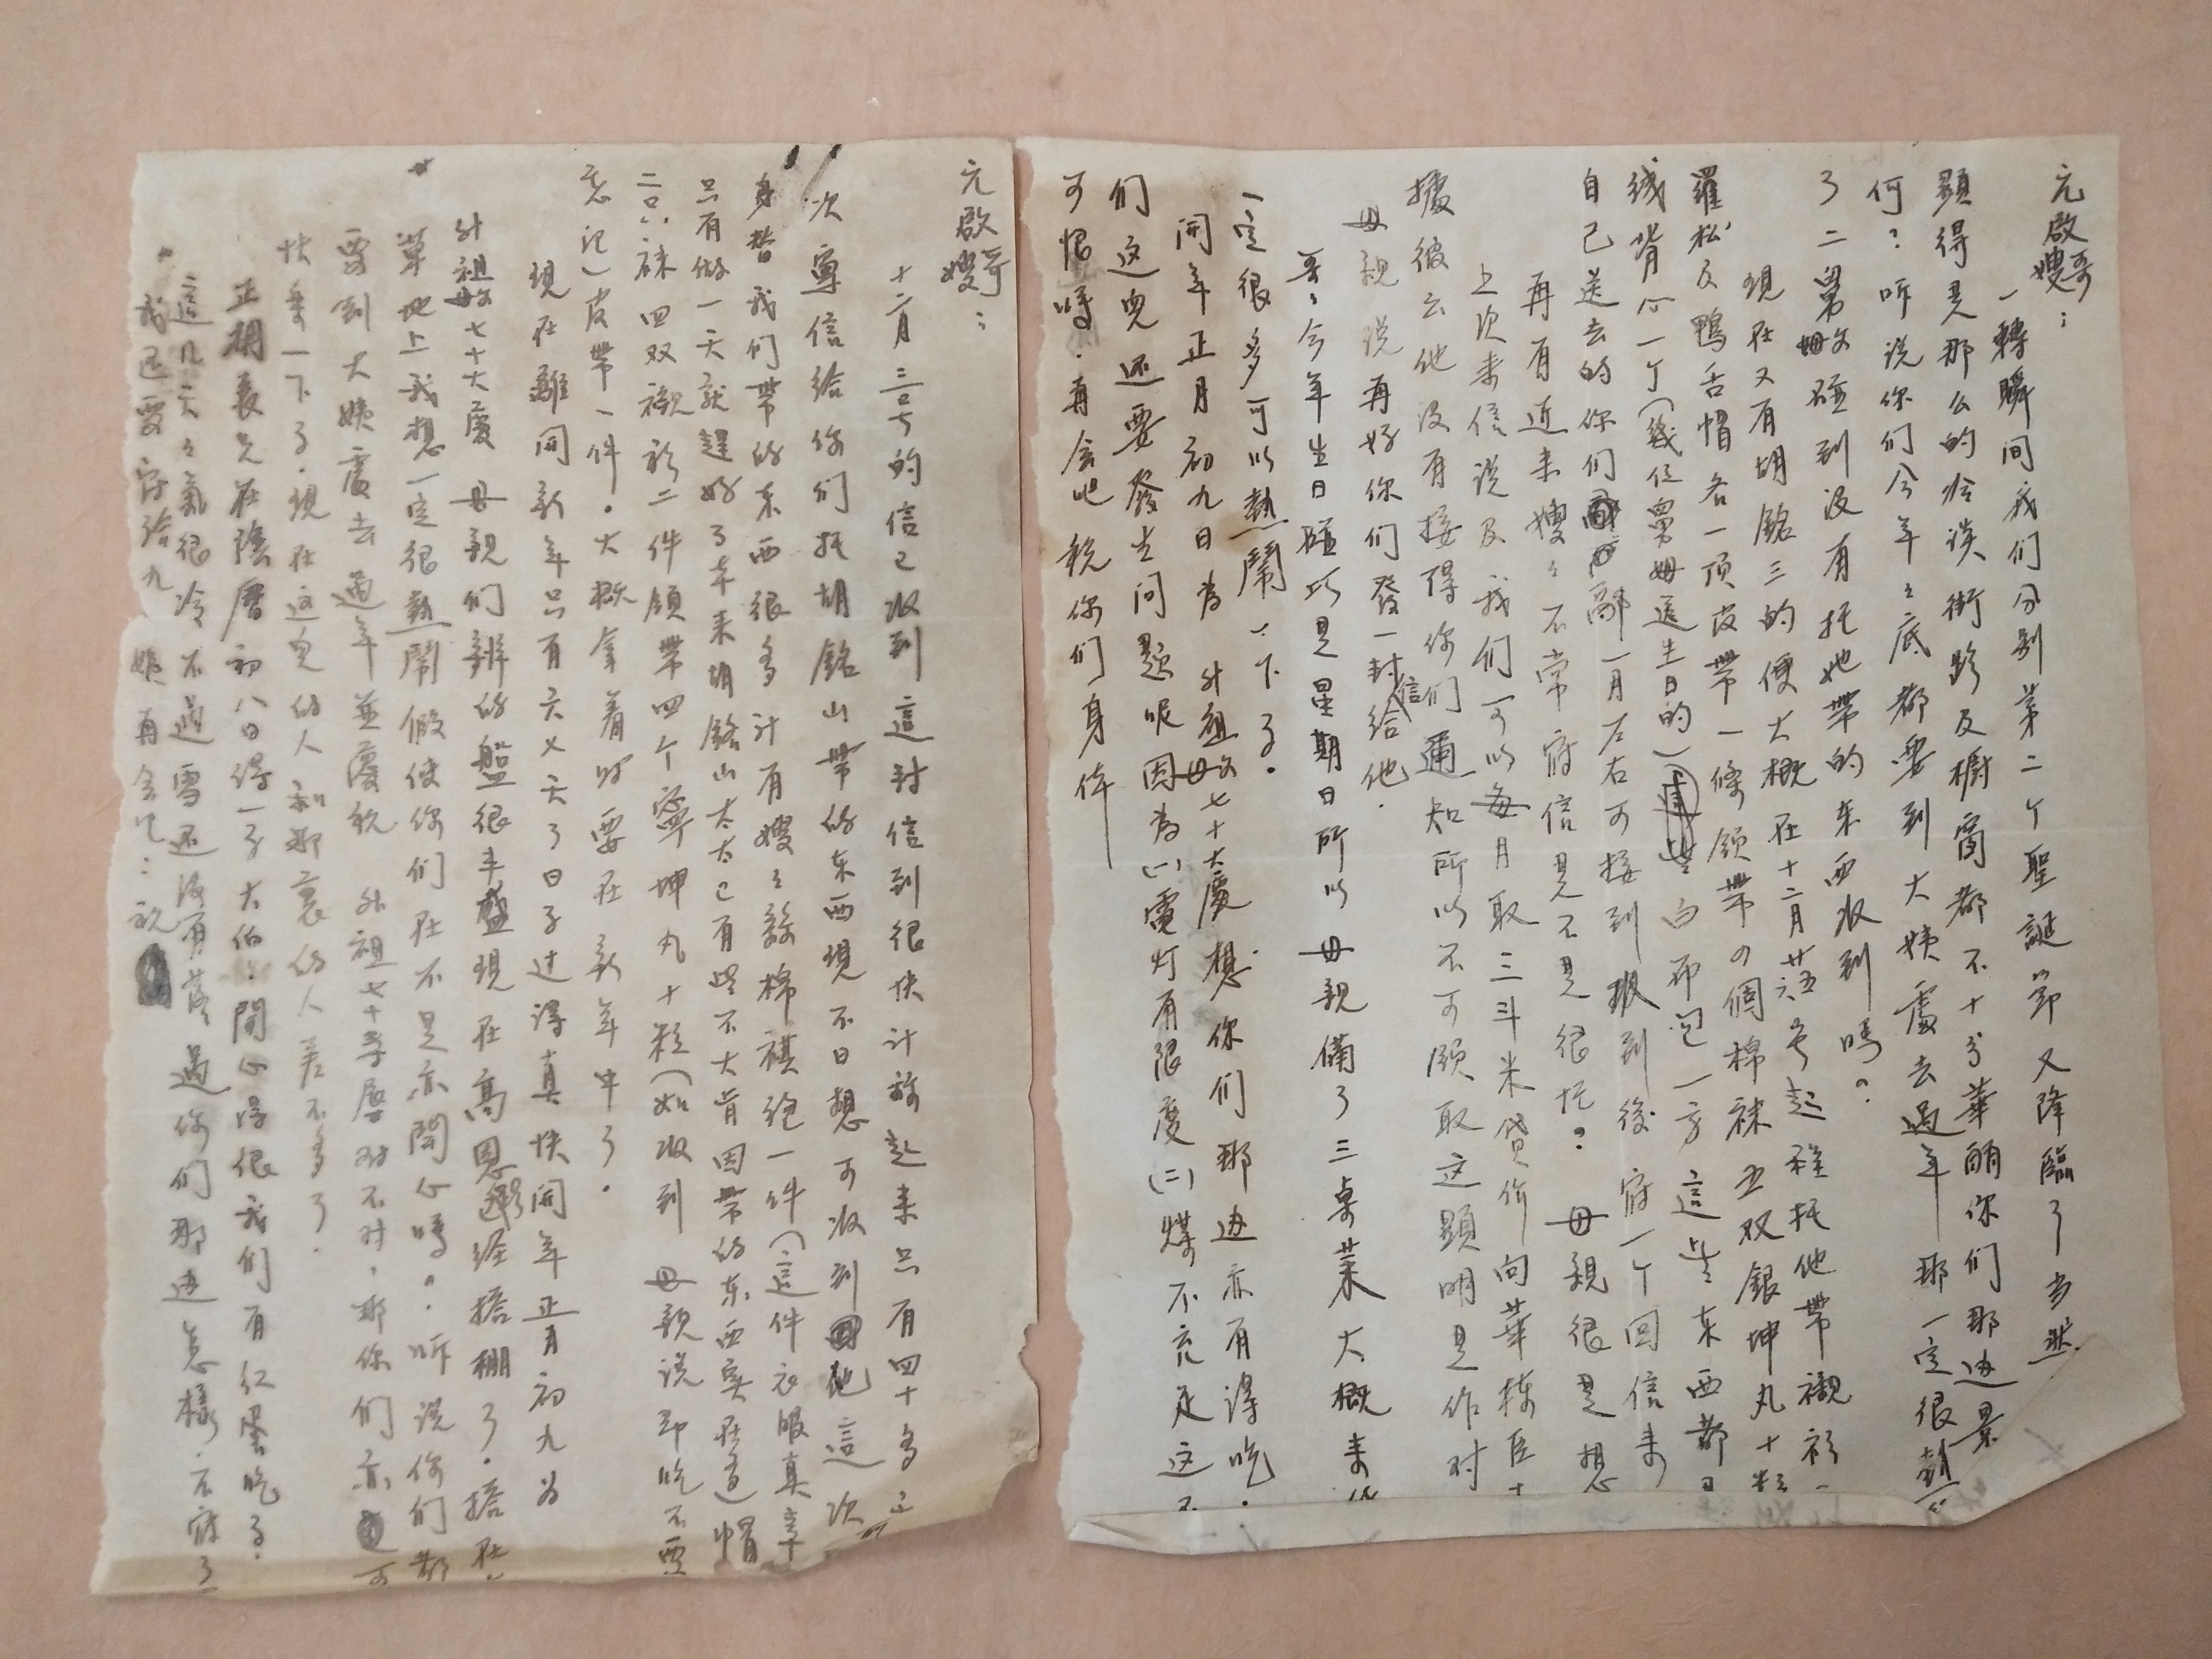 元啟哥嫂:
一轉瞬间我们分别第二个聖誕節又降臨了当然
顕得是那么的恰淡街路及橱窗都不十分華丽你们那边景
何?听说你们今年年底都要到大姨處去過年那一定很
了二舅母碰到没有托她带的东西收到嗎?
現在又有胡銘三的便大概在十二月廿五六号起程托他带襯衫一
羅松反鴨舌帽各一顶皮带一條领带四個棉袜五双銀坤丸十粒
絨背心一个(幾位舅母送生日的) 白布一方這些东西都
自己送去的你们 一月左右可接到 收到後寄一个回信来
再有近来嫂嫂不常寄信是不是很忙?母親很是想
上次来信说及我们可以每月取三斗米貸价向華棟臣十
據彼云他没有接得你们通知所以不可领取这顕明是作对
母親说再好你们發一封信给他.
哥哥今年生日碰巧是星期日所以母親備了三桌菜大概来
一定很多可以熱鬧一下了.
開年正月初九日为外祖父母七十大慶想你们那边亦有得吃.
们这兒还要發生问题呢因为(一)電灯有限度(二)煤不充足这
可恨嗎.再会吧 祝你们身体
元啟哥嫂:
十二月三号的信已收到這封信到很快计祘起来只有四十多
次寄信给你们托胡銘山带的东西現不日想可收到 他這次
身替我们带的东西很多计有嫂嫂絲棉祺袍一件(這件衣服真幸
只有做一天就趕好了本来胡銘山太太已有些不大肯因带的东西实在多)帽
二只袜四双襯衫二件领带四个寧坤丸十粒(如收到母親说即吃不要
忘记)皮带一件.大概拿着时要在新年中了.
現在離開新年只有六七天了日子过得真快開年正月初九为
外祖父母七十大慶母親们辦的盤很丰盛現在高恩 经搭棚了.搭在
草地上我想一定很熱鬧假使你们在不是亦開心嗎.听说你们都
要到大姨處去過年並慶祝外祖七十壽辰对不对,那你们亦 可
快乐一下了.現在这兒的人和那裏的人差不多了.
正 表兄在陰曆初八日得一子大伯 開心得很我们有红蛋吃了.
這几天天氣很冷不過雪还没有落過你们那边怎樣.不寫了
我还要寄给九姨再会吧:祝